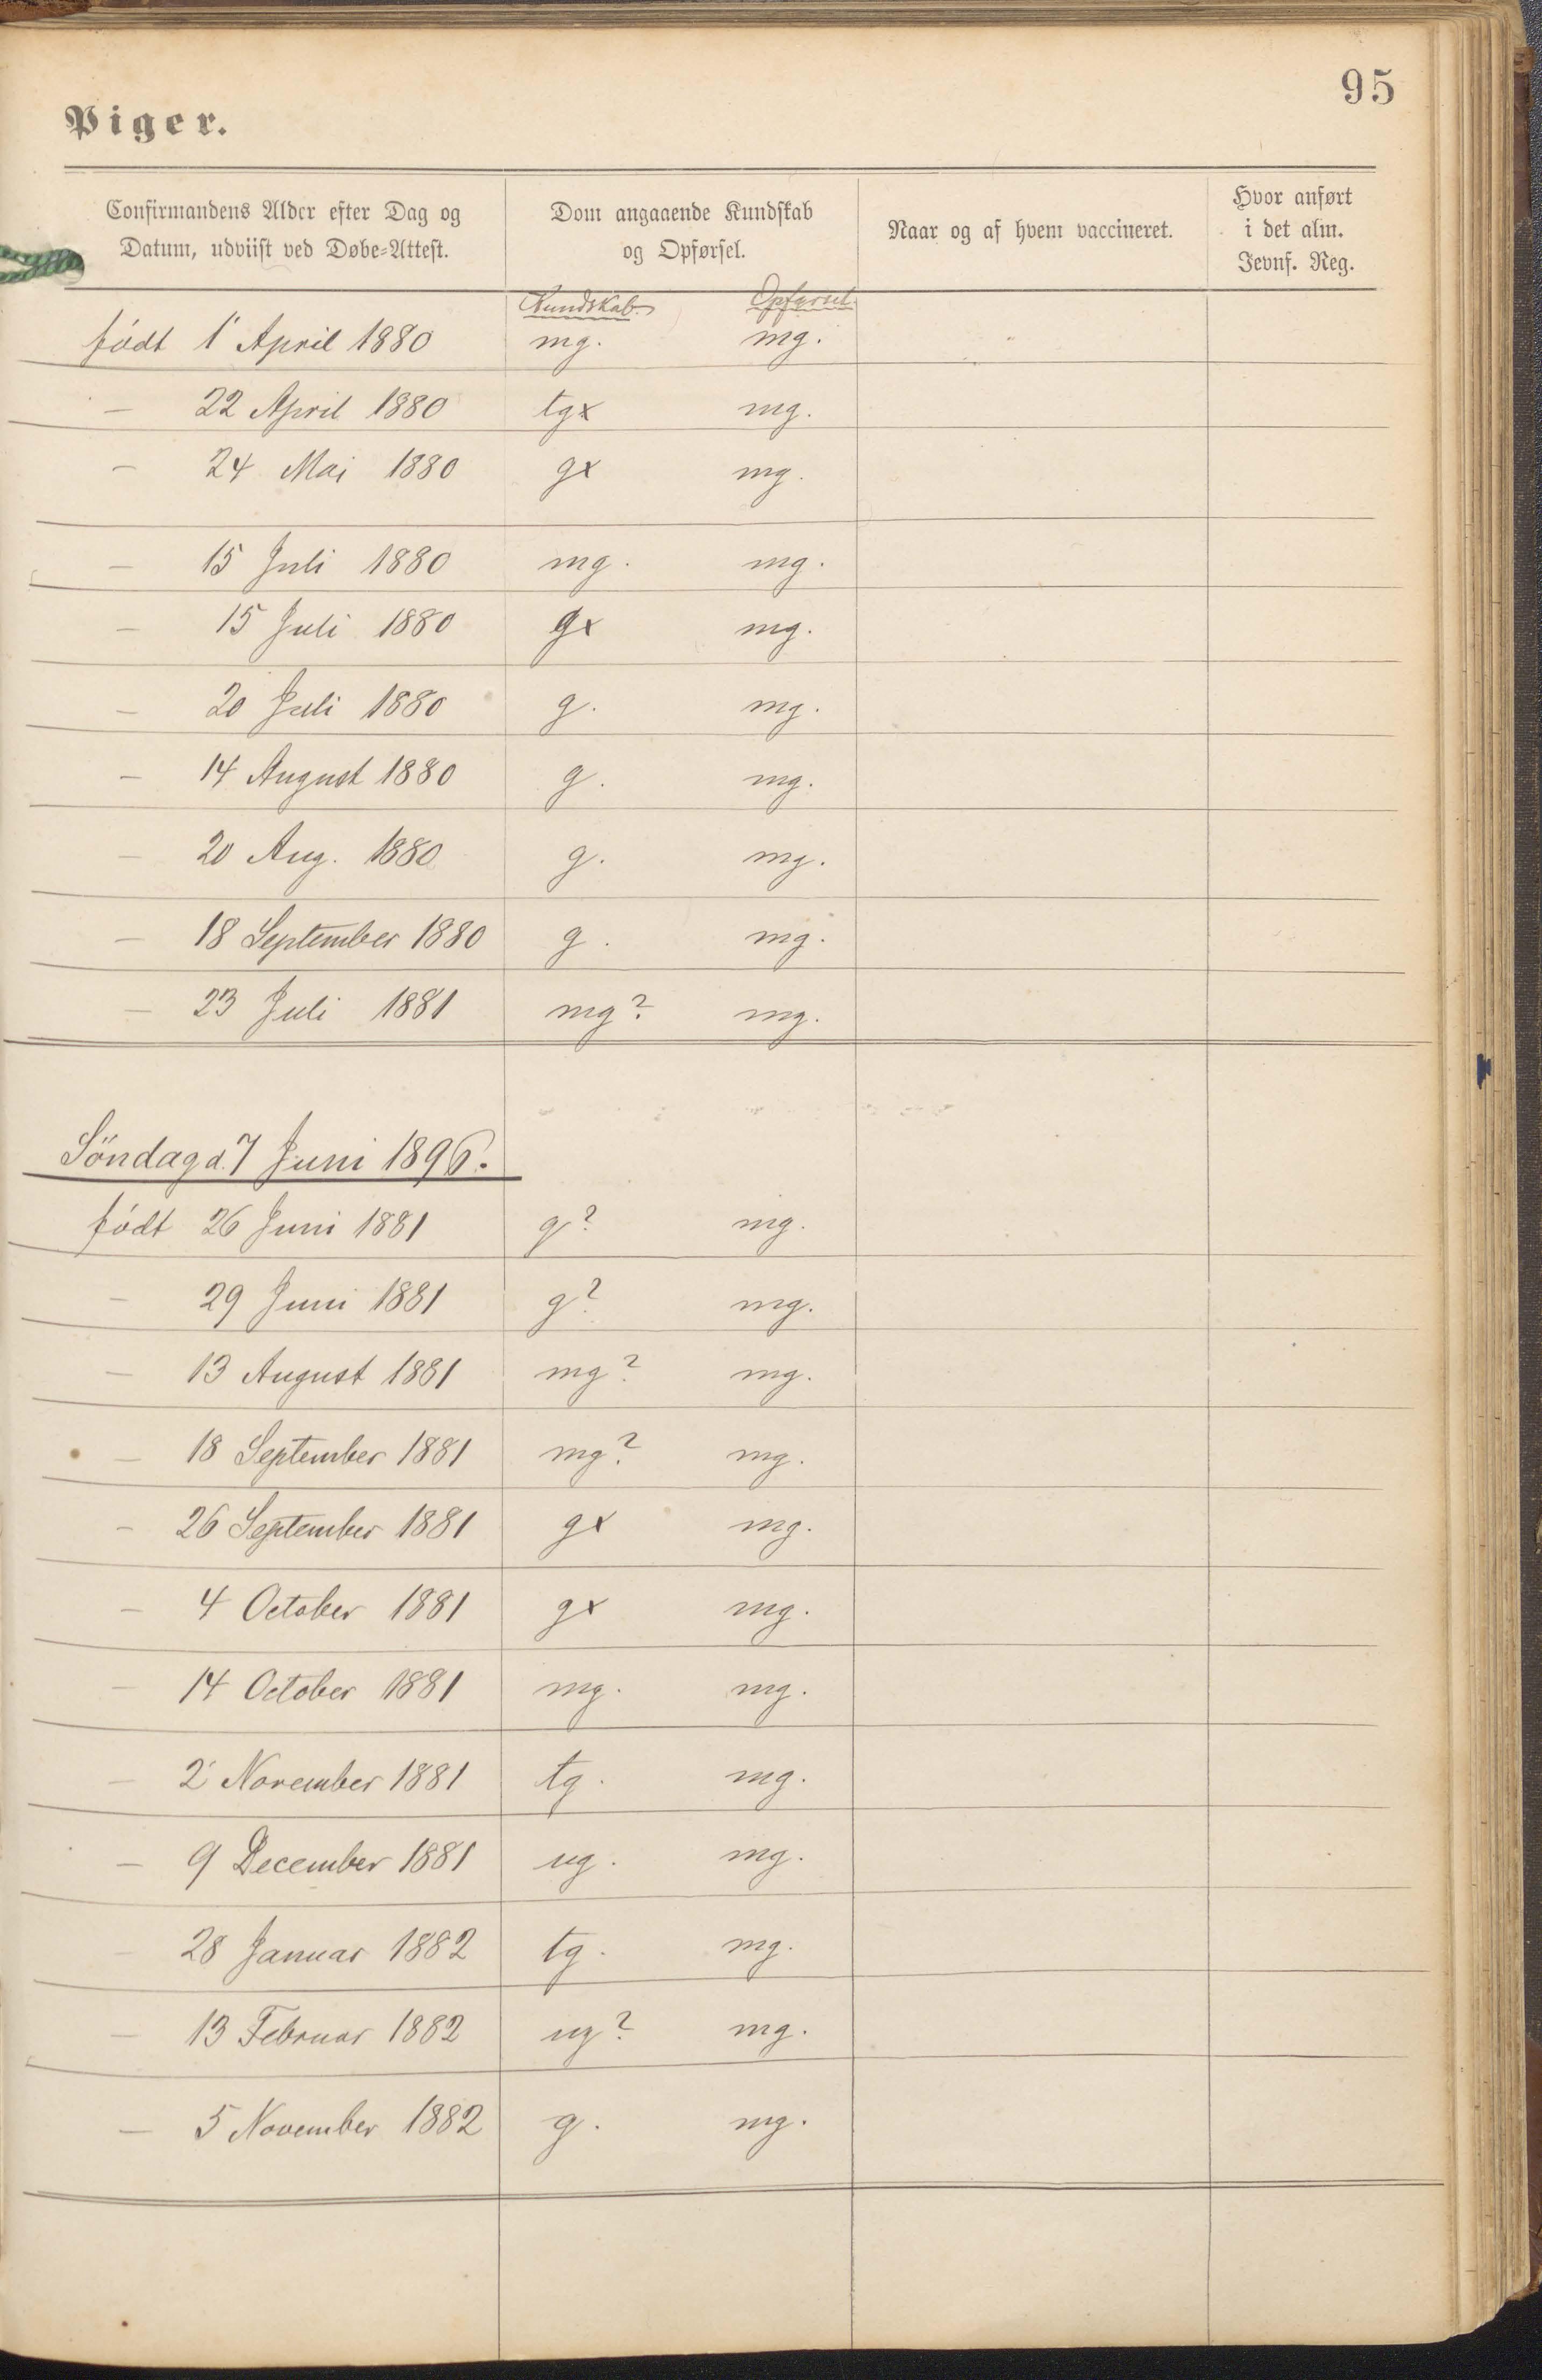 95
Piger.
Confirmandens Alder efter Dag og
Datum, udviist ved Døbe-Attest.
Dom angaaende Kundskab
og Opførsel.
Naar og af hvem vaccineret.
Hvor anført
i det alm.
Jevnf. Reg.
Kundskab. Opførsel.
født 1 April 1880 mg. mg.
– 22 April 1880 tgx mg.
– 24 Mai 1880 gx mg.
– 15 Juli 1880 mg. mg.
– 15 Juli 1880 gx mg.
– 20 Juli 1880 g. mg.
– 14 August 1880 g. mg.
– 20 Aug. 1880 g. mg.
– 18 September 1880 g. mg.
– 23 Juli 1881 mg? mg.
Söndag d. 7 Juni 1896.
født 26 Juni 1881 g? mg.
– 29 Juni 1881 g? mg.
– 13 August 1881 mg? mg.
– 18 September 1881 mg? mg.
– 26 September 1881 gx mg.
– 4 October 1881 gx mg.
– 14 October 1881 mg. mg.
– 2 November 1881 tg. mg.
– 9 December 1881 ug. mg.
– 28 Januar 1882 tg. mg.
– 13 Februar 1882 ug? mg.
– 5 November 1882 g. mg.